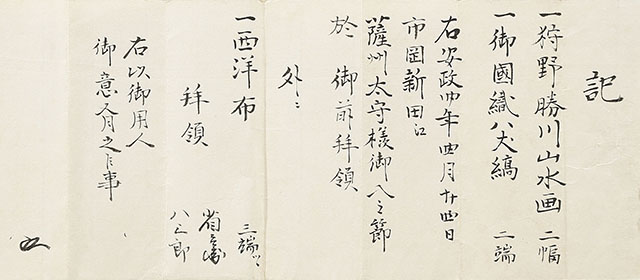 記
一狩野勝川山水画 二幅
一御國織八丈縞 二端
右安政四年四月廿四日
市岡新田江
薩州太守様御入之節
於 御前拝領
外ニ
一西洋布 三端ツヽ
拝領
八三郎
右以御用人
御意
之事